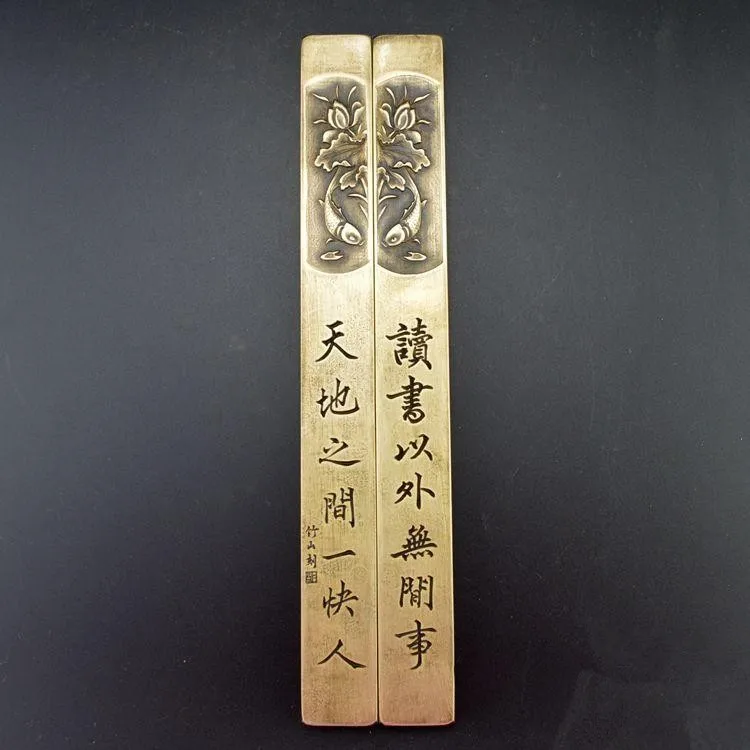 讀書以外無閒事
天地之間一快人
竹山刻